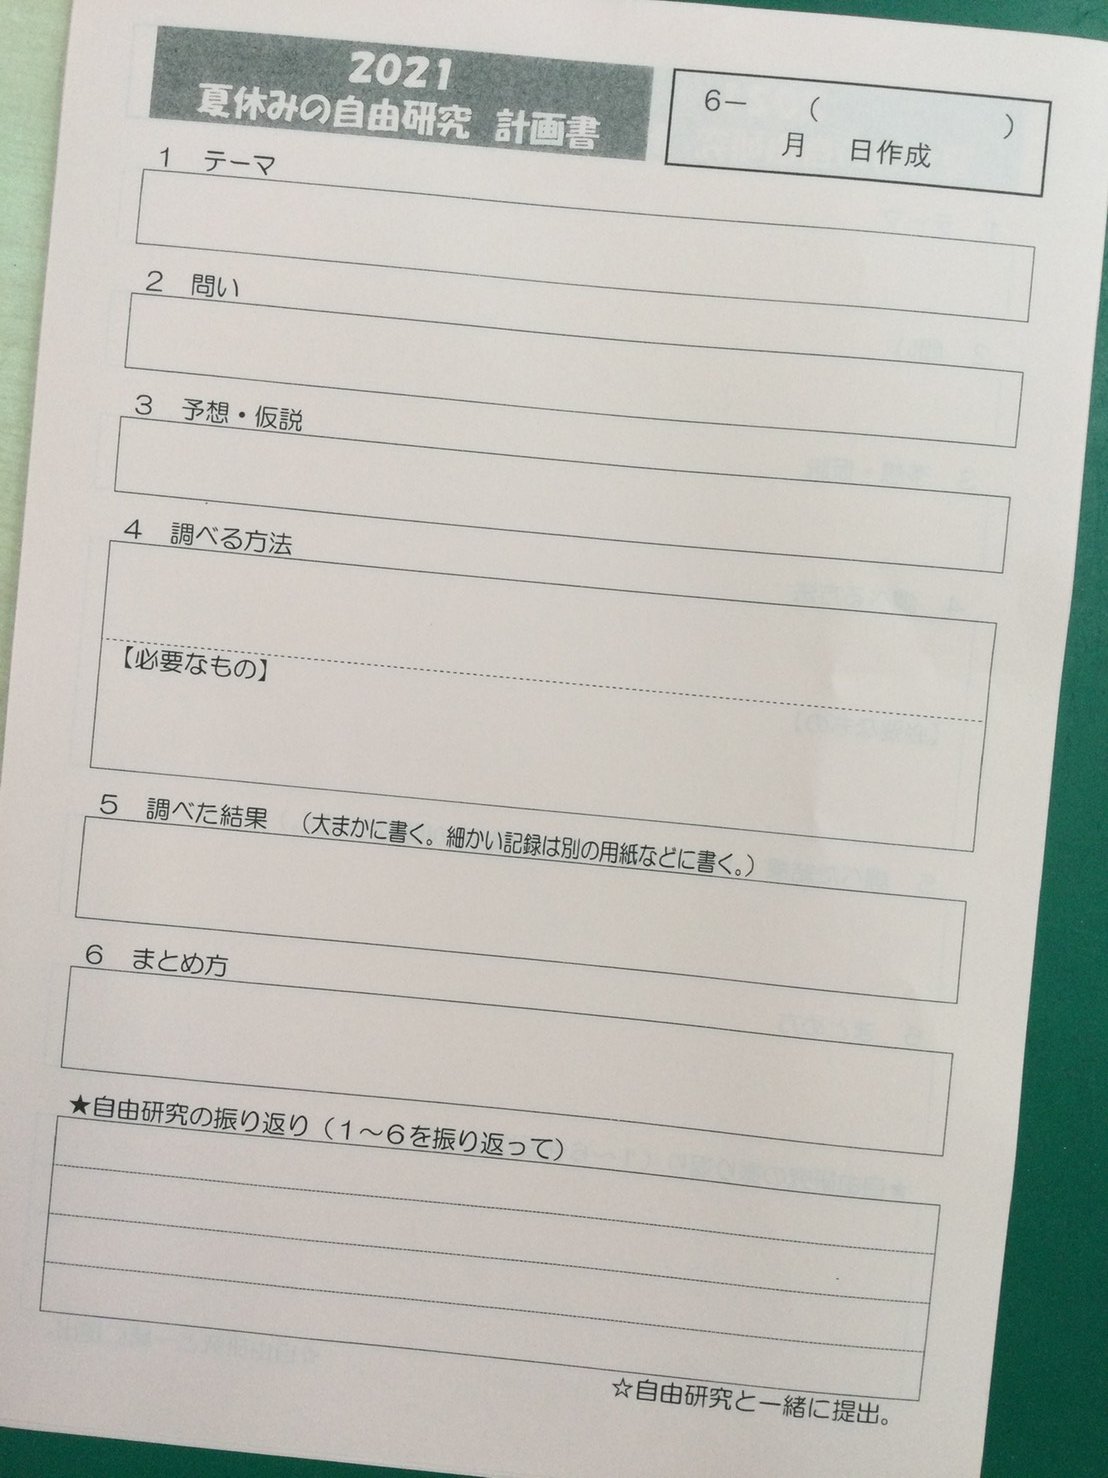 2021
夏休みの自由研究 計画書
6－ （ ）
月 日作成
1 テーマ
2 問い
3 予想・仮説
4 調べる方法
【必要なもの】
5 調べた結果 （大まかに書く。細かい記録は別の用紙などに書く。）
6 まとめ方
★自由研究の振り返り（1～6を振り返って）
☆自由研究と一緒に提出。